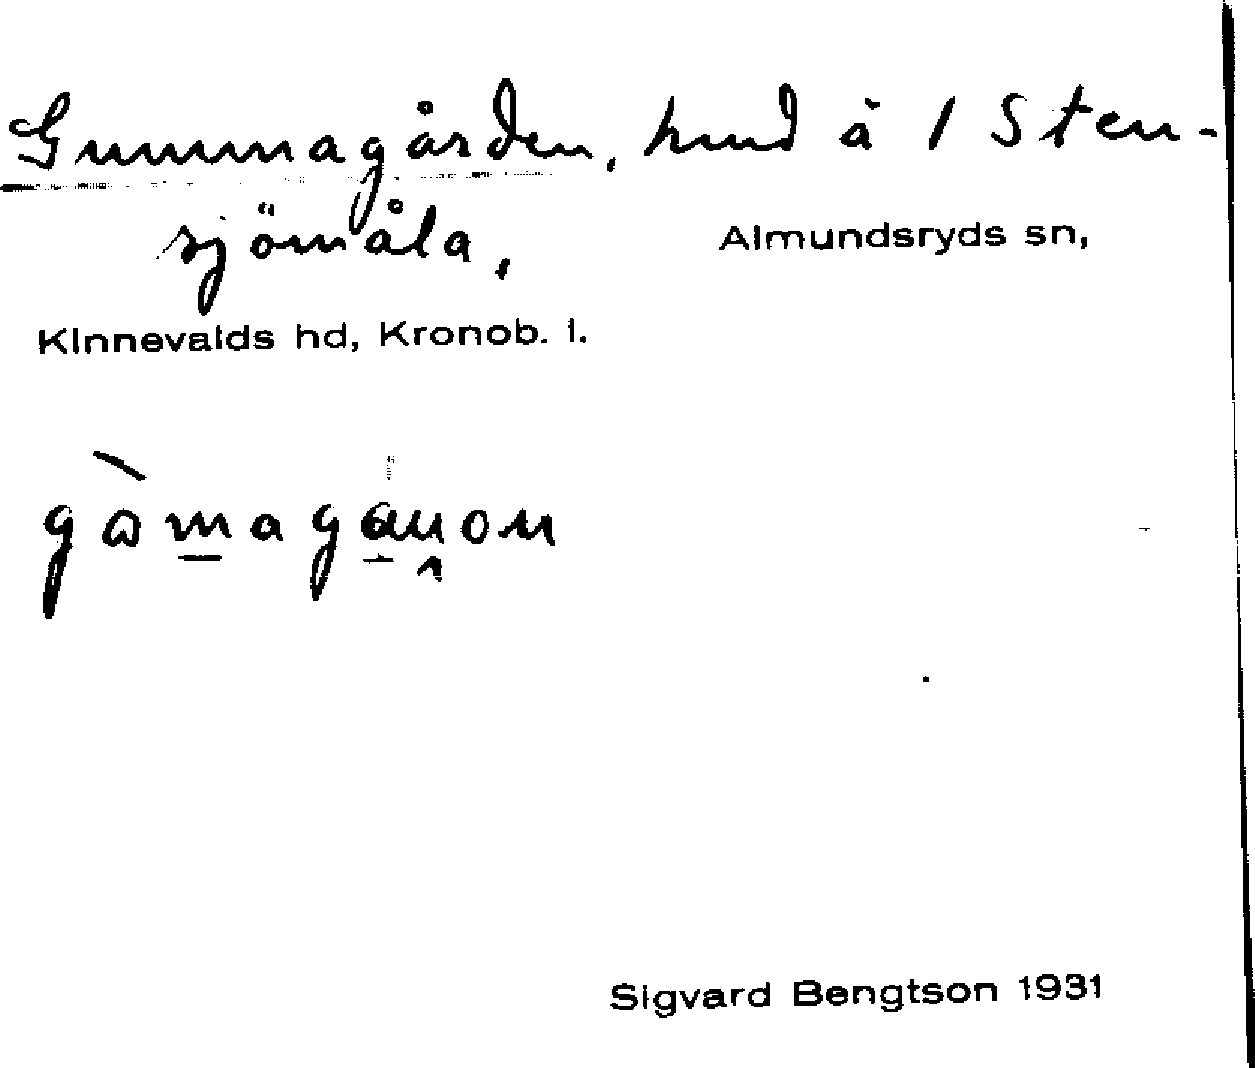 Gummagården, hmd å 1 Sten-
sjömåla, Almundsryds sn,
Kinnevalds hd, Kronob. l.
Sigvard Bengtson 1931